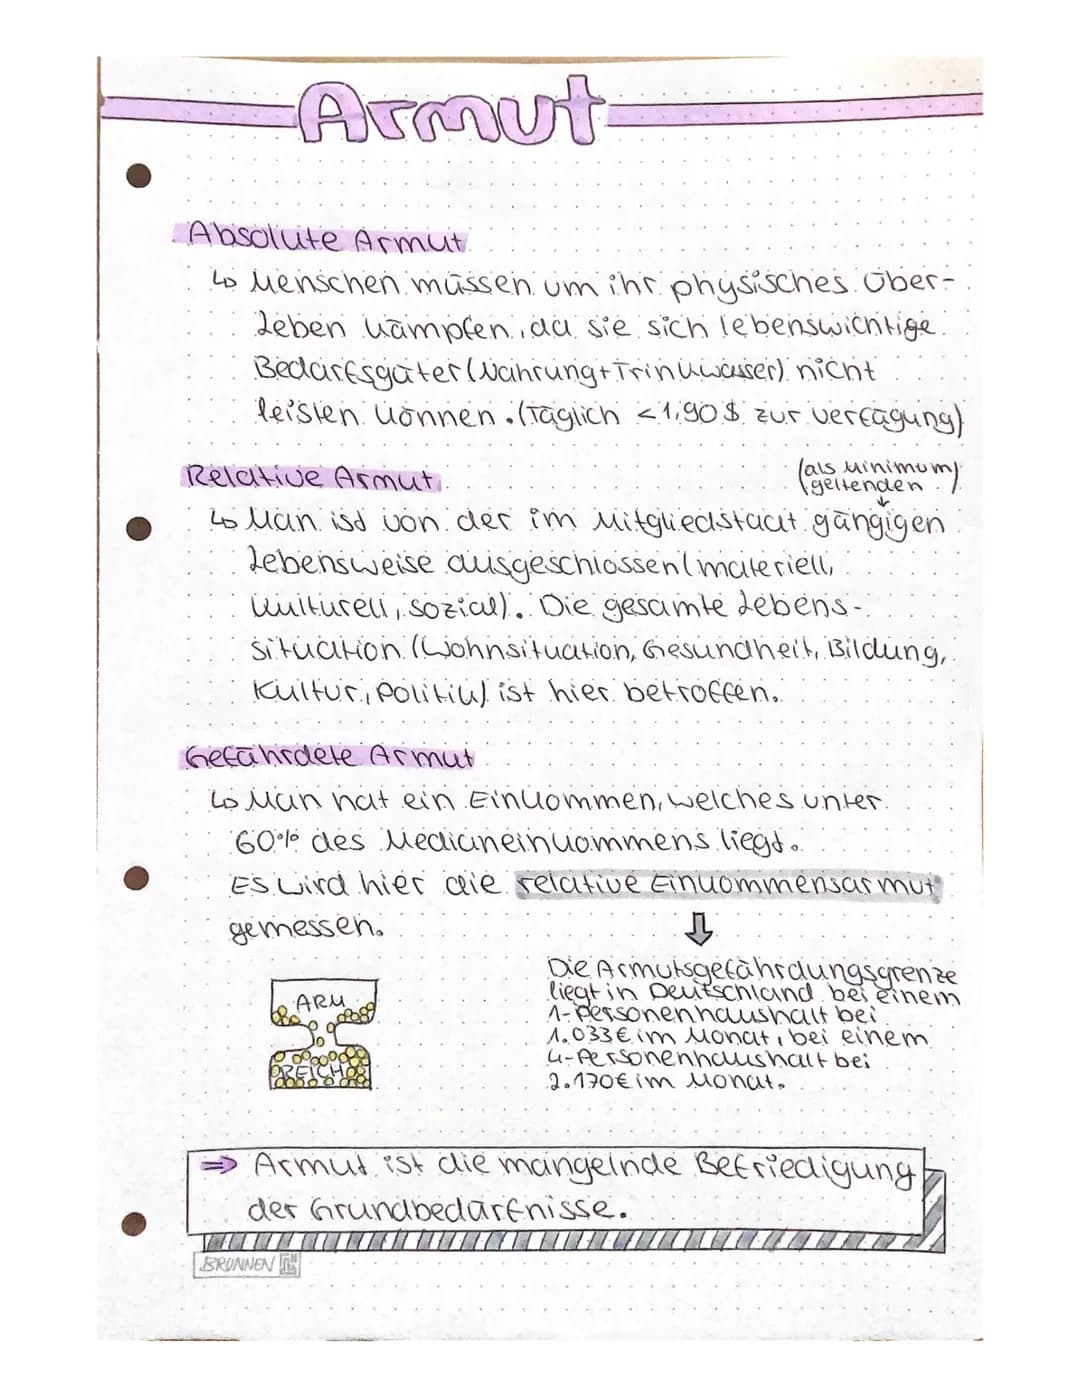 Armut
Absolute Armut
↳ Menschen müssen um ihr physisches Über-
leben kämpfen, da sie sich lebenswichtige
Bedarfsgüter (Nahrung+Trinkwasser) nicht
leisten können. (Täglich <1,90$ zur Verfügung)
Relative Armut
(als Minimum
geltenden)
↳ Man ist von der im Mitgliedstaat gängigen
Lebensweise ausgeschlossen (materiell,
kulturell, sozial). Die gesamte Lebens-
situation (Wohnsituation, Gesundheit, Bildung,
Kultur, Politik) ist hier betroffen.
Gefährdete Armut
↳ Man hat ein Einkommen, welches unter
60% des Medianeinkommens liegt.
Es wird hier die relative Einkommensarmut
gemessen.
Die Armutsgefährdungsgrenze
liegt in Deutschland bei einem
1-Personenhaushalt bei
1.033€ im Monat, bei einem
4-Personenhaushalt bei
2.170€ im Monat.
ARM
REICH
⇒ Armut ist die mangelnde Befriedigung
der Grundbedürfnisse.
BRUNNEN